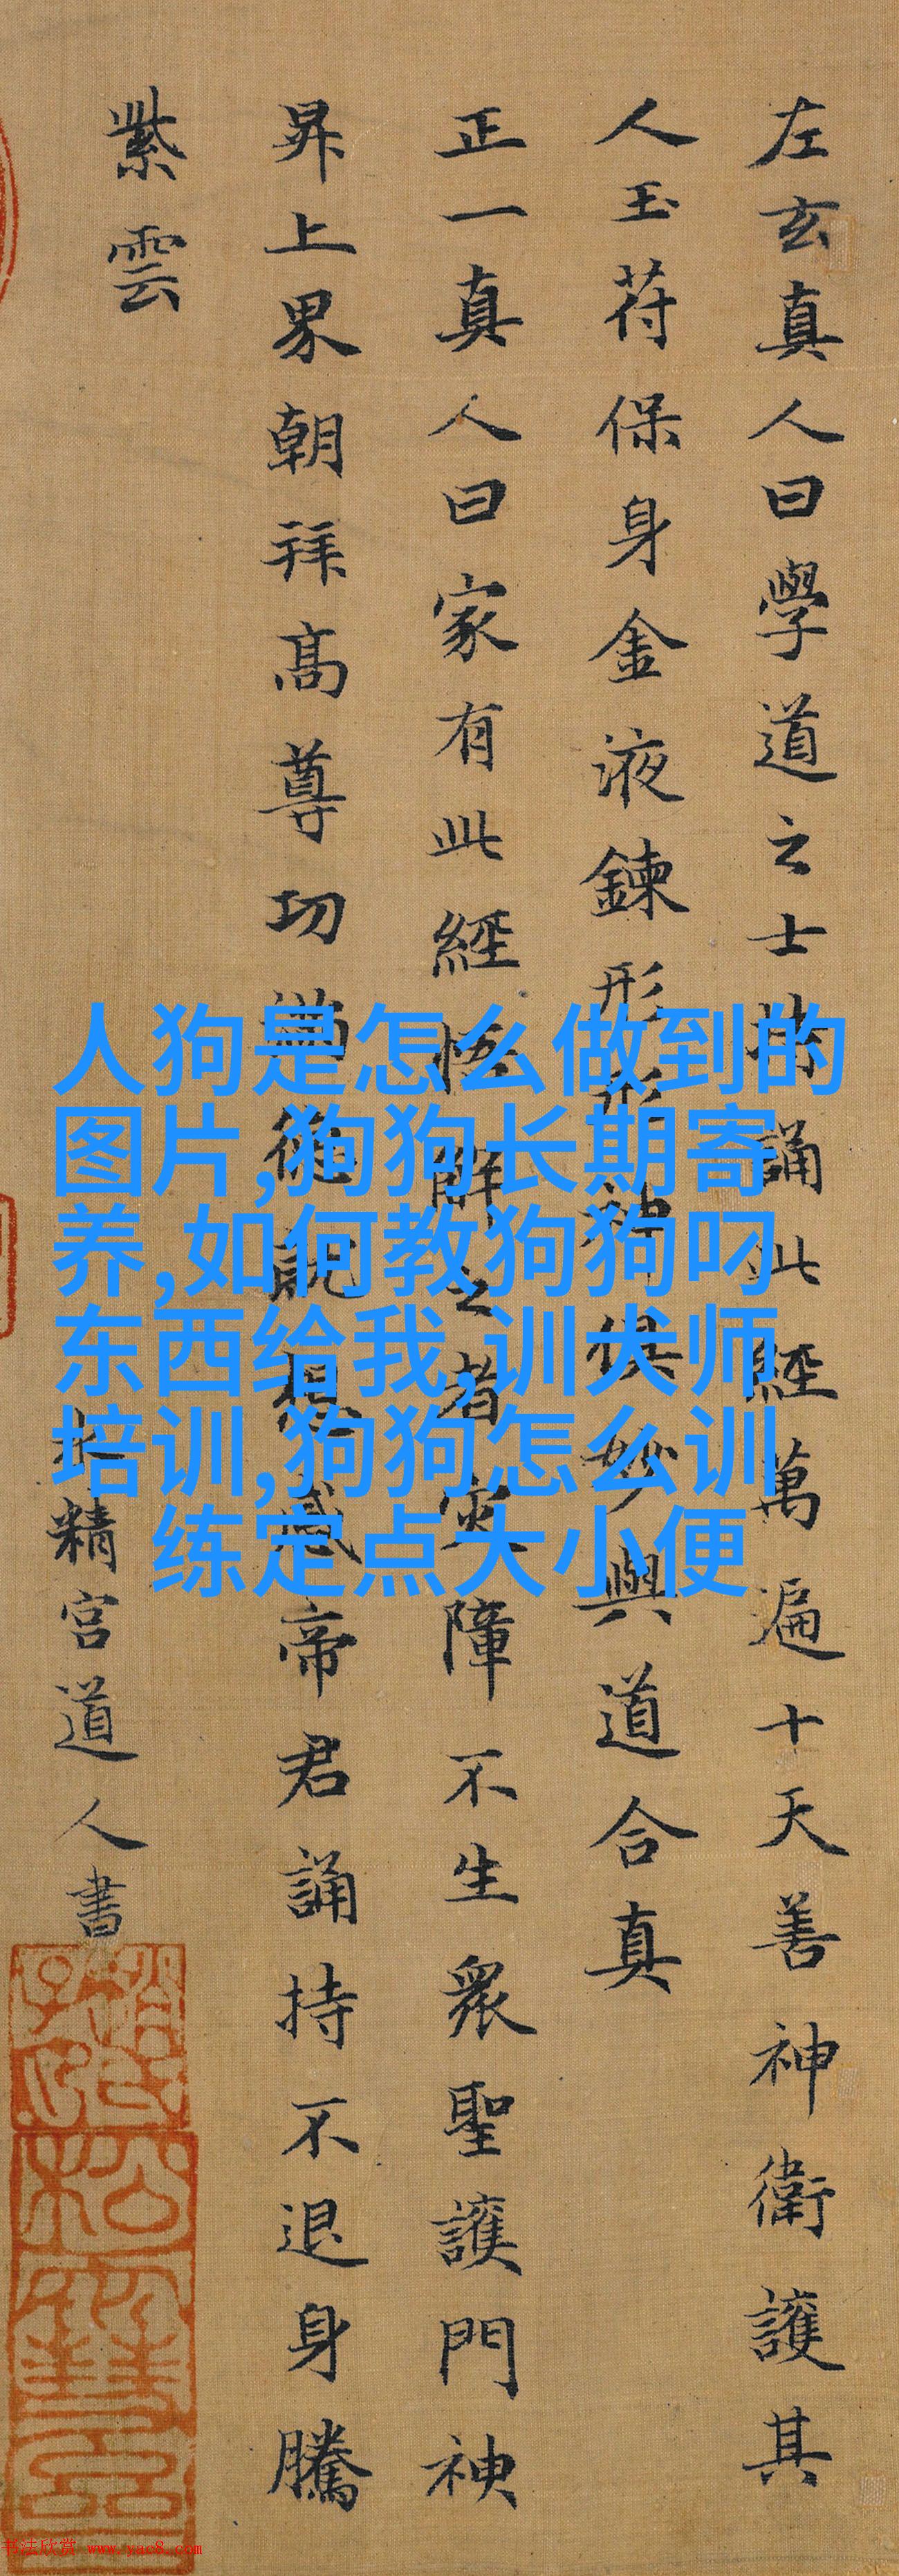 左玄真人曰學道之士持誦此經萬遍十天善神衛護其
人玉苻保身金液鍊形形神俱妙與道合真
正一真人曰家有此經悟解之者災障不生衆聖護門神
昇上界朝拜髙尊功滿德就想感帝君誦持不退身騰
紫雲
水精宮道人書
人狗是怎么做到的
图片,狗狗长期寄
养,如何教狗狗叼
东西给我,训犬师
培训,狗狗怎么训
练定点大小便
书法欣赏 www.yac8.com